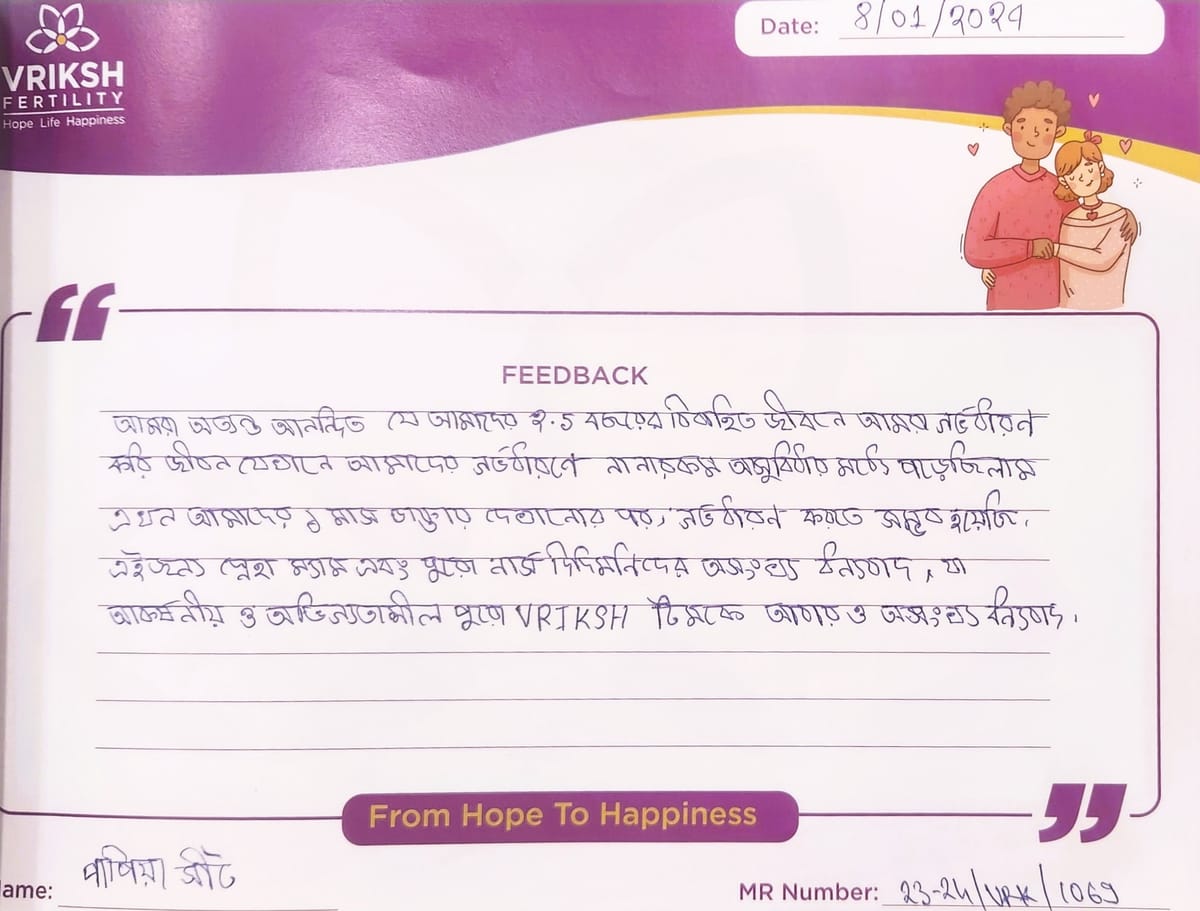 VRIKSH
FERTILITY
Hope Life Happiness
Date: 8/01/2024
FEEDBACK
আমরা অত্যন্ত আনন্দিত যে আমাদের ২.5 বছরের বিবাহিত জীবনে আমরা গর্ভধারণ
করি জীবন যেখানে আমাদের গর্ভধারণে নানারকম অসুবিধার মধ্যে পড়েছিলাম
এখন আমাদের ১ মাস ডাক্তার দেখানোর পর, গর্ভধারন করতে সম্ভব হয়েছি.
এইজন্য স্নেহা ম্যাম এবং পুরো নার্স দিদিমনিদের অসংখ্য ধন্যবাদ, যা
আকর্ষনীয় ও অভিন্যতাশীল পুরো VRIKSH টিমকে আবার ও অসংখ্য ধন্যবাদ.
From Hope To Happiness
ame: পাপিয়া সাঁট
MR Number: 23-24/VRK/1069